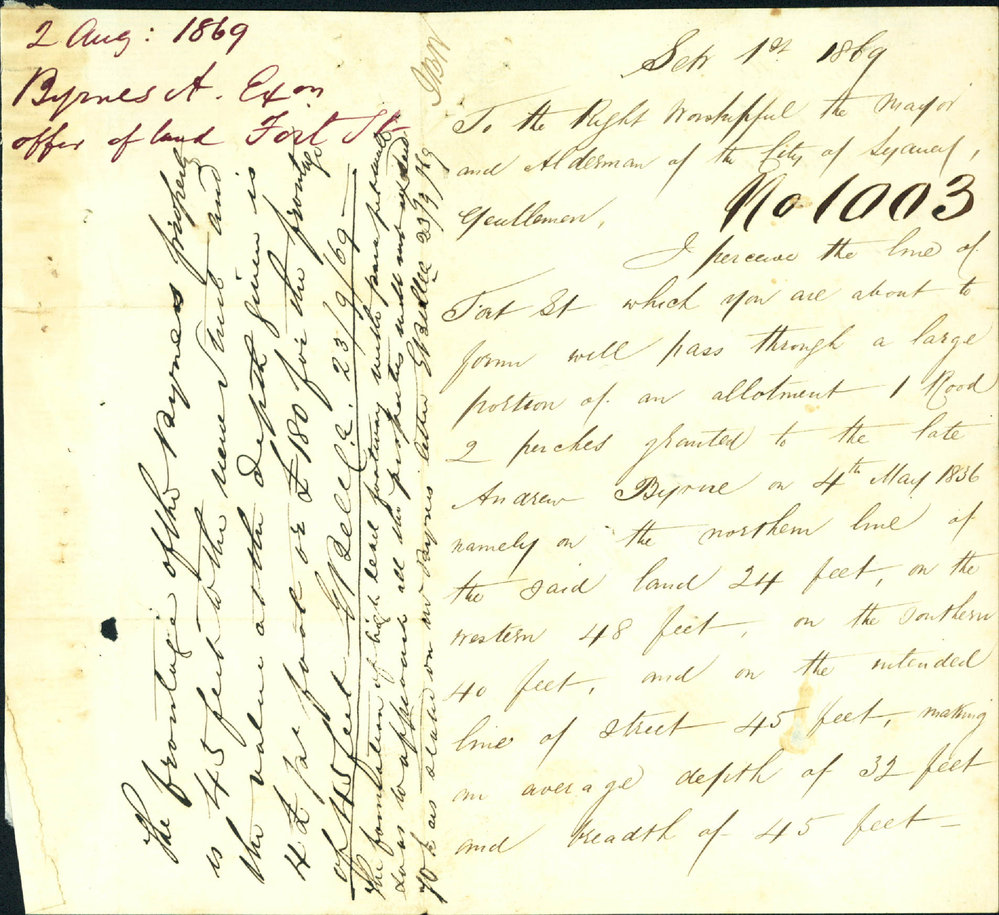 2 Aug: 1869
Byrnes A. Exon
offer of land Fort St
Sept 1st 1869
To the Right Worshipful the Mayor
and Alderman of the City of Sydney,
Gentlemen,
No 1003
I perceive the line of
Fort St which you are about to
form will pass through a large
portion of an allotment 1 Rood
2 perches granted to the late
Andrew Byrne on 4th May 1836
namely on the northern line of
the said land 24 feet, on the
western 48 feet, on the southern
40 feet, and on the intended
line of street 45 feet, making
an average depth of 32 feet
and breadth of 45 feet —
The frontage of the Byrnes property
is 45 feet to the new street and
the value at the depth given is
4 £ per foot or £180 for the frontage
of 45 feet E Bell C.E. 23/9/69
The formation of high level footway with
so as to approach all the properties will not exceed
70 £ as stated on Mr Byrnes letter E Bell CE 23/9/69